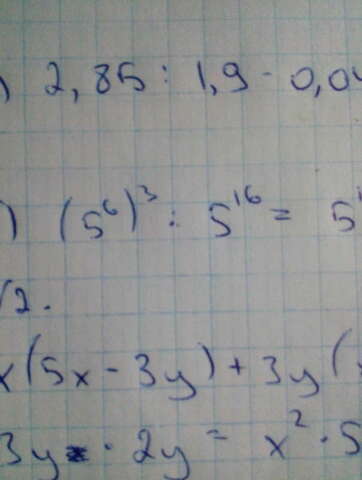 ) 2,85 : 1,9 - 0,04
) (5⁶)³ : 5¹⁶ = 5
√2.
x(5x - 3y) + 3y(
3y · 2y = x² · 5